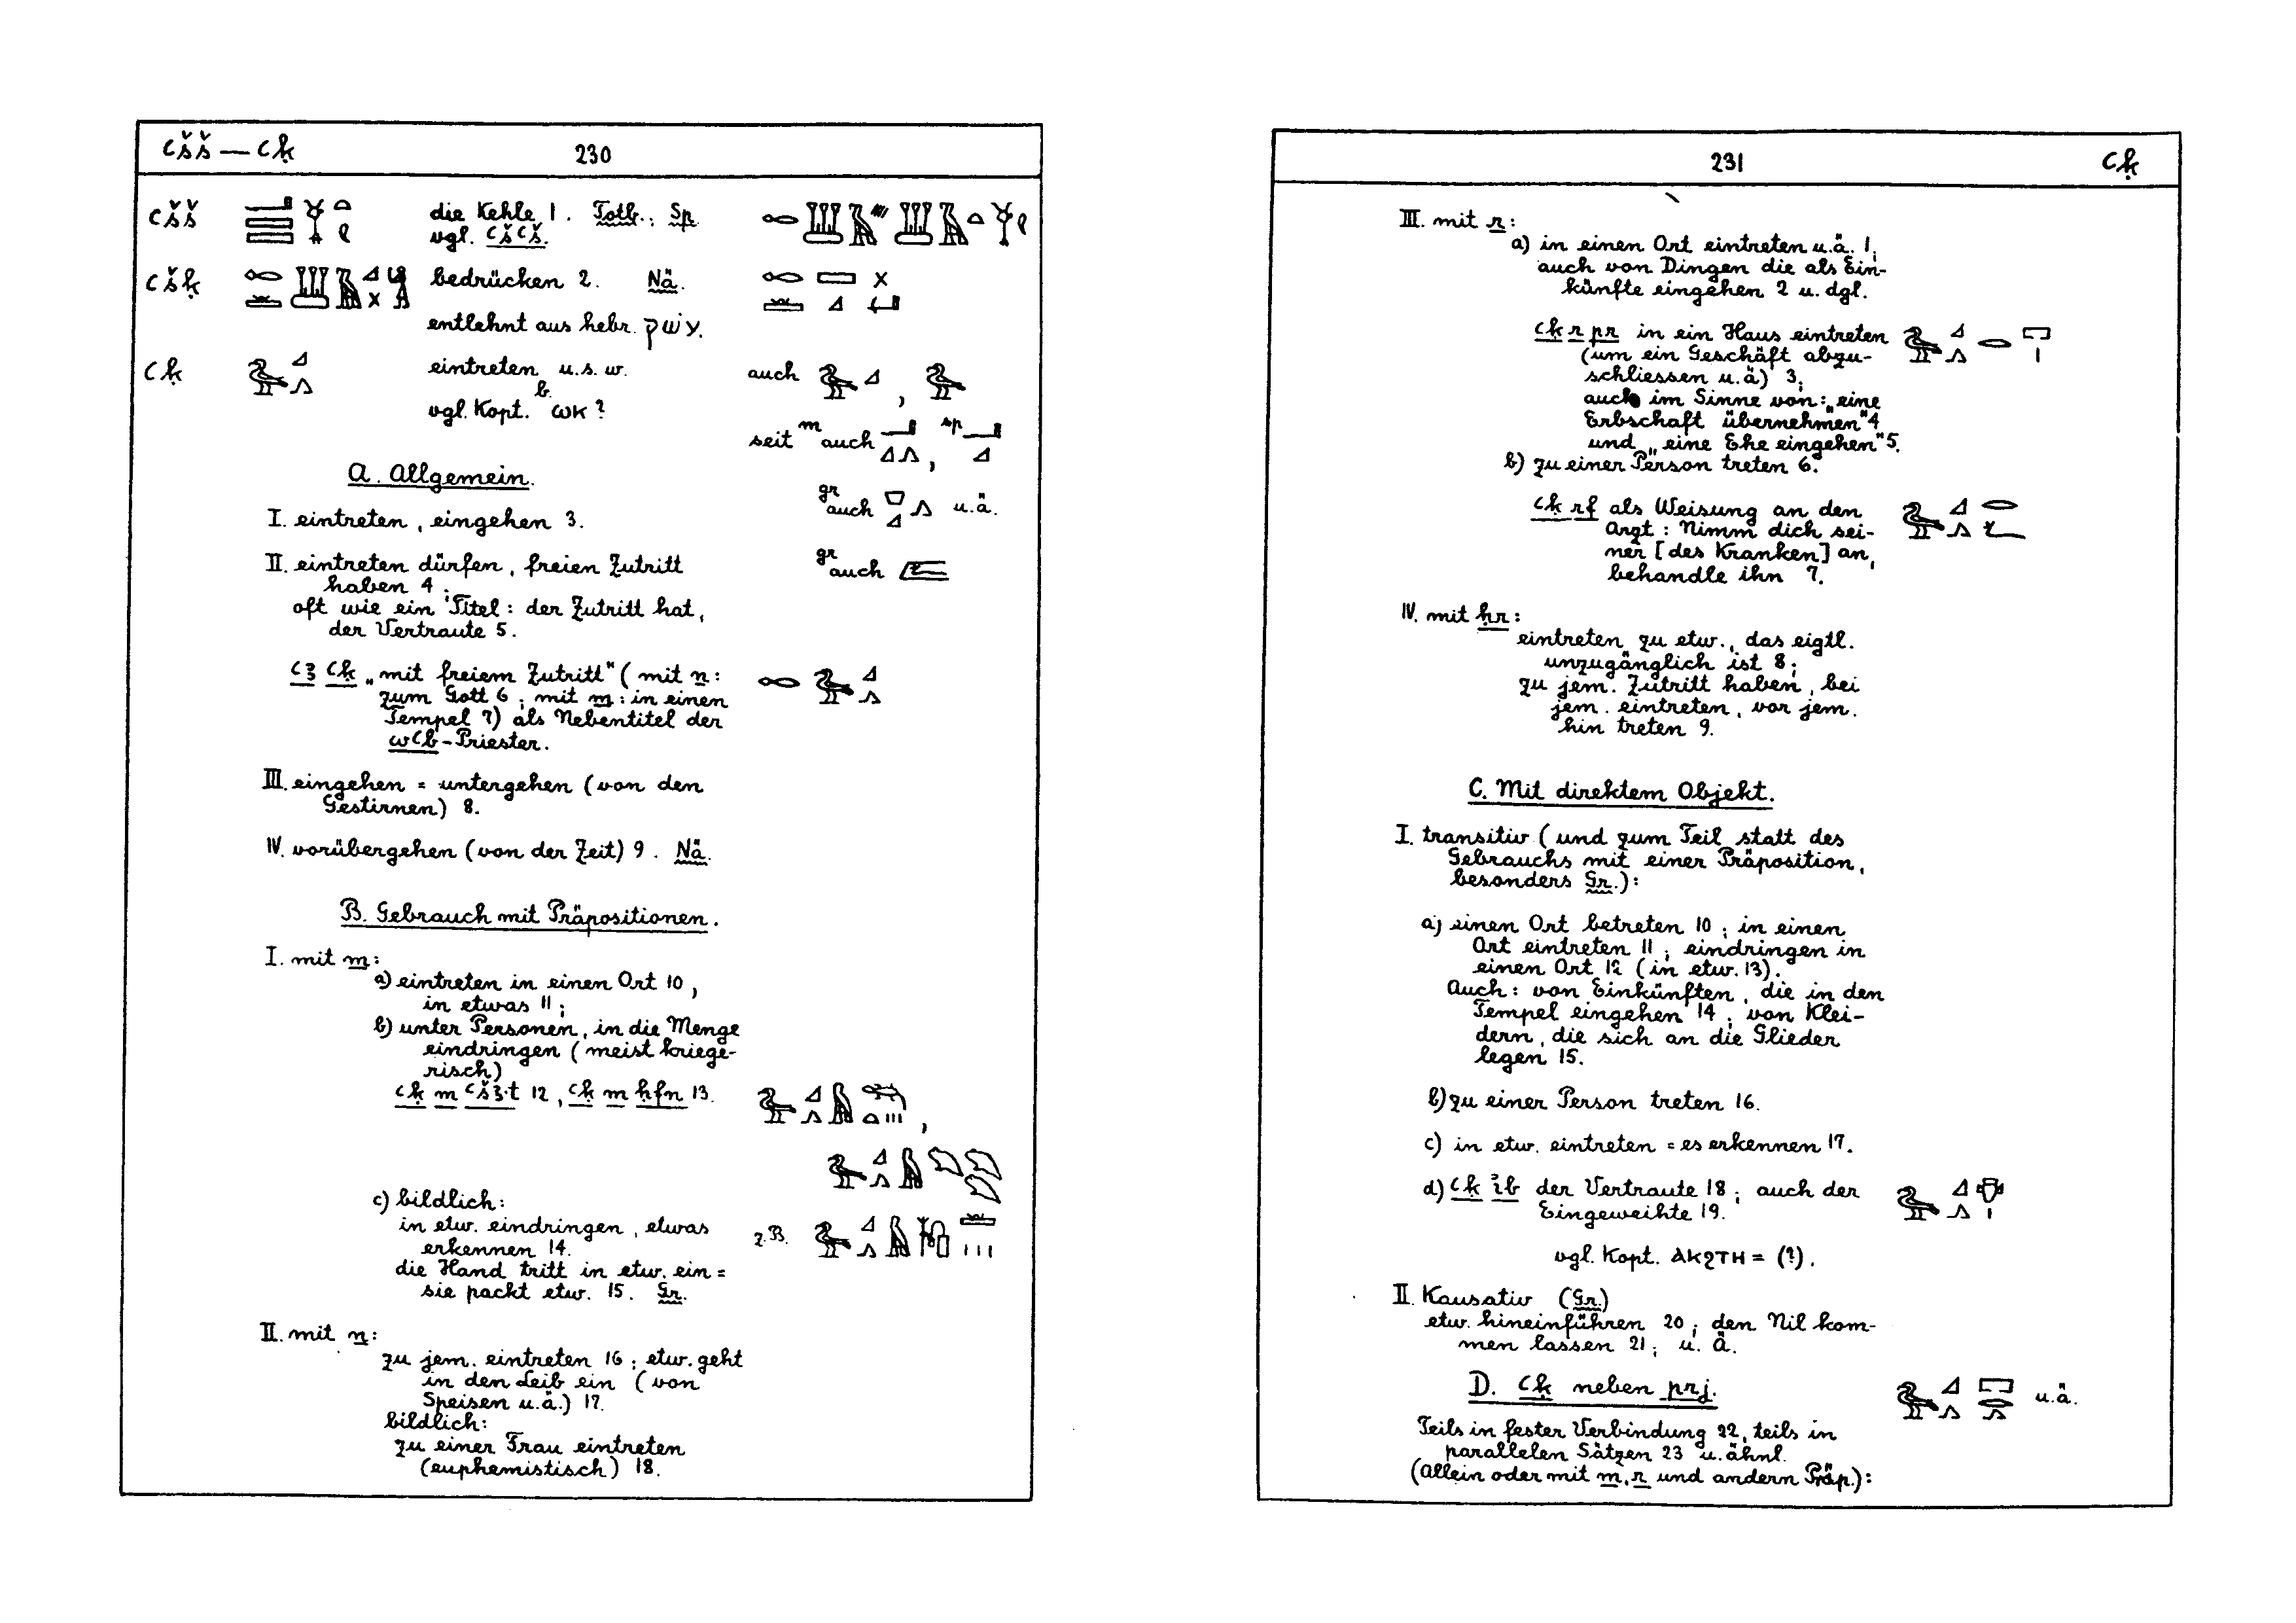 ꜥšš — ꜥḳ
230
ꜥšš die Kehle 1. Totb.: Sp.
vgl. ꜥšꜥš.
ꜥšḳ bedrücken 2. Nä.
entlehnt aus hebr. עשׁק.
ꜥḳ eintreten u.s.w. auch ,
vgl. Kopt. ᵇωκ?
seit m auch , sp
A. Allgemein.
gr auch u.ä.
I. eintreten, eingehen 3.
II. eintreten dürfen, freien Zutritt
gr auch
haben 4;
oft wie ein Titel: der Zutritt hat,
der Vertraute 5.
ꜥꜣ ꜥḳ „mit freiem Zutritt" (mit n:
zum Gott 6; mit m: in einen
Tempel 7) als Nebentitel der
wꜥb-Priester.
III. eingehen = untergehen (von den
Gestirnen) 8.
IV. vorübergehen (von der Zeit) 9. Nä.
B. Gebrauch mit Präpositionen.
I. mit m:
a) eintreten in einen Ort 10,
in etwas 11;
b) unter Personen, in die Menge
eindringen (meist kriege-
risch)
ꜥḳ m ꜥšꜣ·t 12, ꜥḳ m ḥfn 13. ,
c) bildlich:
in etw. eindringen, etwas z.B.
erkennen 14.
die Hand tritt in etw. ein =
sie packt etw. 15. Gr.
II. mit n:
zu jem. eintreten 16; etw. geht
in den Leib ein (von
Speisen u.ä.) 17.
bildlich:
zu einer Frau eintreten
(euphemistisch) 18.
231
ꜥḳ
III. mit r:
a) in einen Ort eintreten u.ä. 1;
auch von Dingen die als Ein-
künfte eingehen 2 u. dgl.
ꜥḳ r pr in ein Haus eintreten
(um ein Geschäft abzu-
schliessen u.ä) 3;
auch im Sinne von: „eine
Erbschaft übernehmen" 4
und „eine Ehe eingehen" 5.
b) zu einer Person treten 6.
ꜥḳ rf als Weisung an den
Arzt: Nimm dich sei-
ner [des Kranken] an,
behandle ihn 7.
IV. mit ḥr:
eintreten zu etw., das eigtl.
unzugänglich ist 8;
zu jem. Zutritt haben, bei
jem. eintreten, vor jem.
hin treten 9.
C. Mit direktem Objekt.
I. transitiv (und zum Teil statt des
Gebrauchs mit einer Präposition,
besonders Gr.):
a) einen Ort betreten 10; in einen
Ort eintreten 11; eindringen in
einen Ort 12 (in etw. 13).
Auch: von Einkünften, die in den
Tempel eingehen 14; von Klei-
dern, die sich an die Glieder
legen 15.
b) zu einer Person treten 16.
c) in etw. eintreten = es erkennen 17.
d) ꜥḳ ı͗b der Vertraute 18; auch der
Eingeweihte 19.
vgl. Kopt. ⲁⲕϩⲧⲏ= (?).
II. Kausativ (Gr.)
etw. hineinführen 20; den Nil kom-
men lassen 21; u. ä.
D. ꜥḳ neben prj. u.ä.
Teils in fester Verbindung 22, teils in
parallelen Sätzen 23 u. ähnl.
(Allein oder mit m, r und andern Präp.):